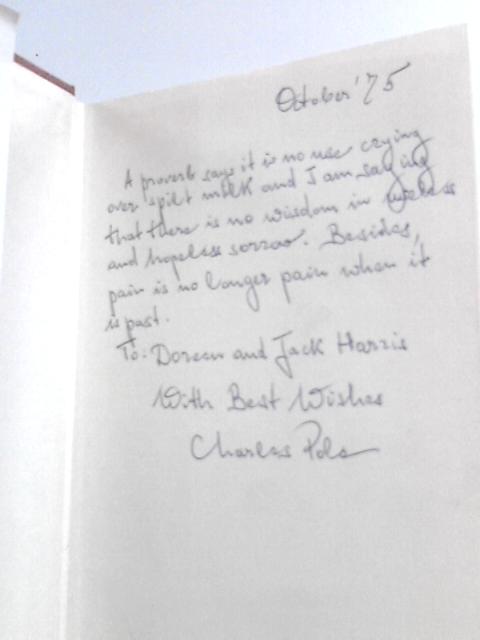 October '75
A proverb says it is no use crying
over spilt milk and I am saying
that there is no wisdom in useless
and hopeless sorrow. Besides,
pain is no longer pain when it
is past.
To: Doreen and Jack Harris
With Best Wishes
Charles Pols